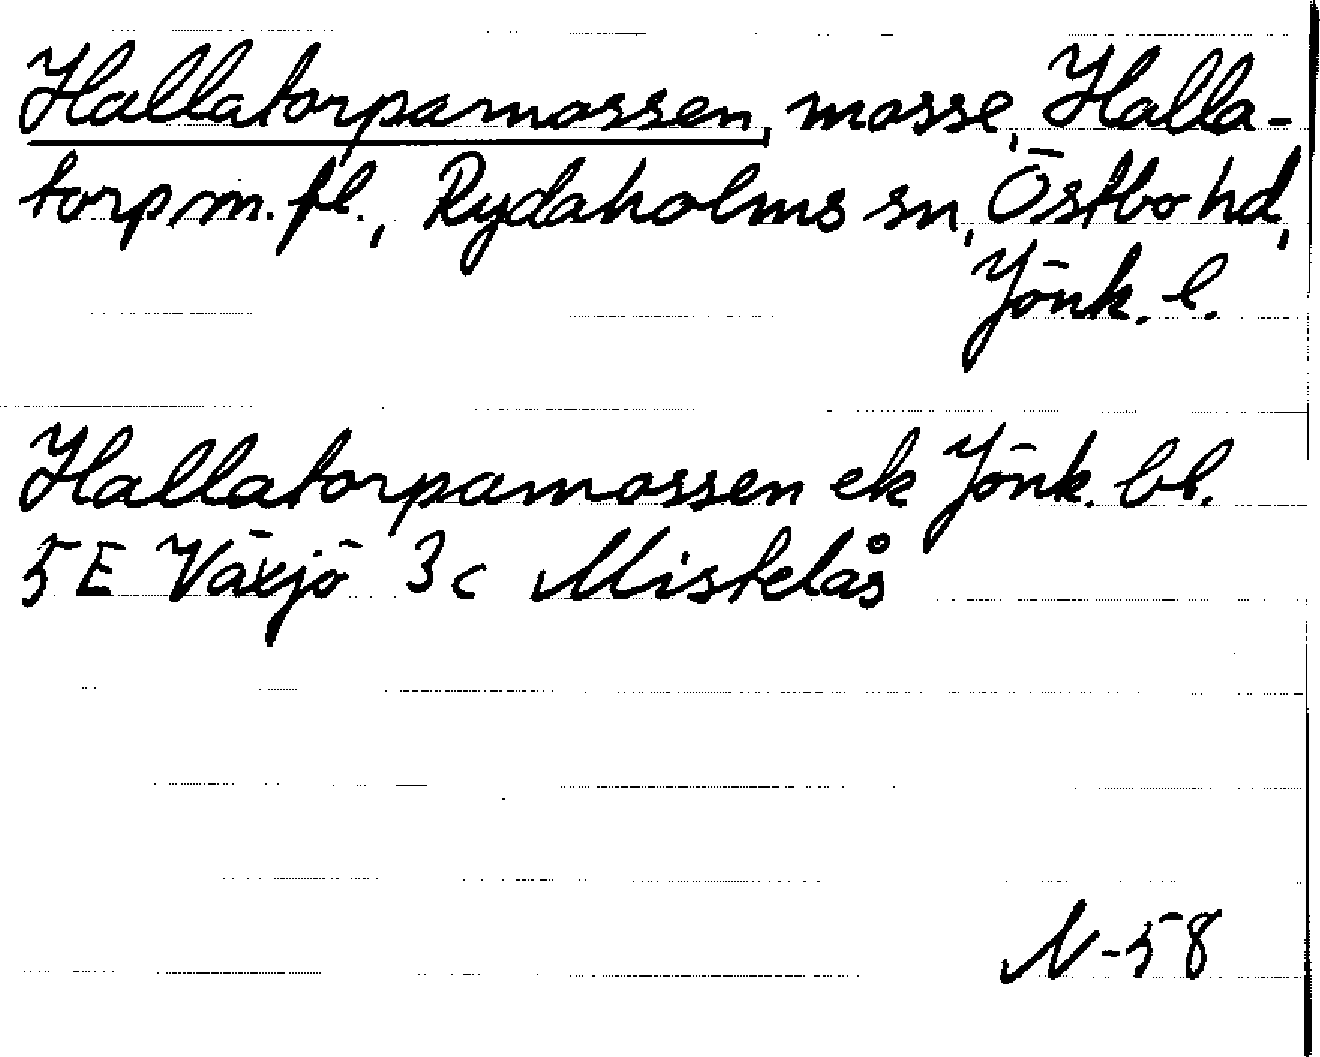 Hallatorpamossen, mosse, Halla-
torp m. fl., Rydaholms sn, Östbo hd,
Jönk. l.
Hallatorpamossen ek Jönk. bl.
5E Växjö 3c Mistelås
N-58